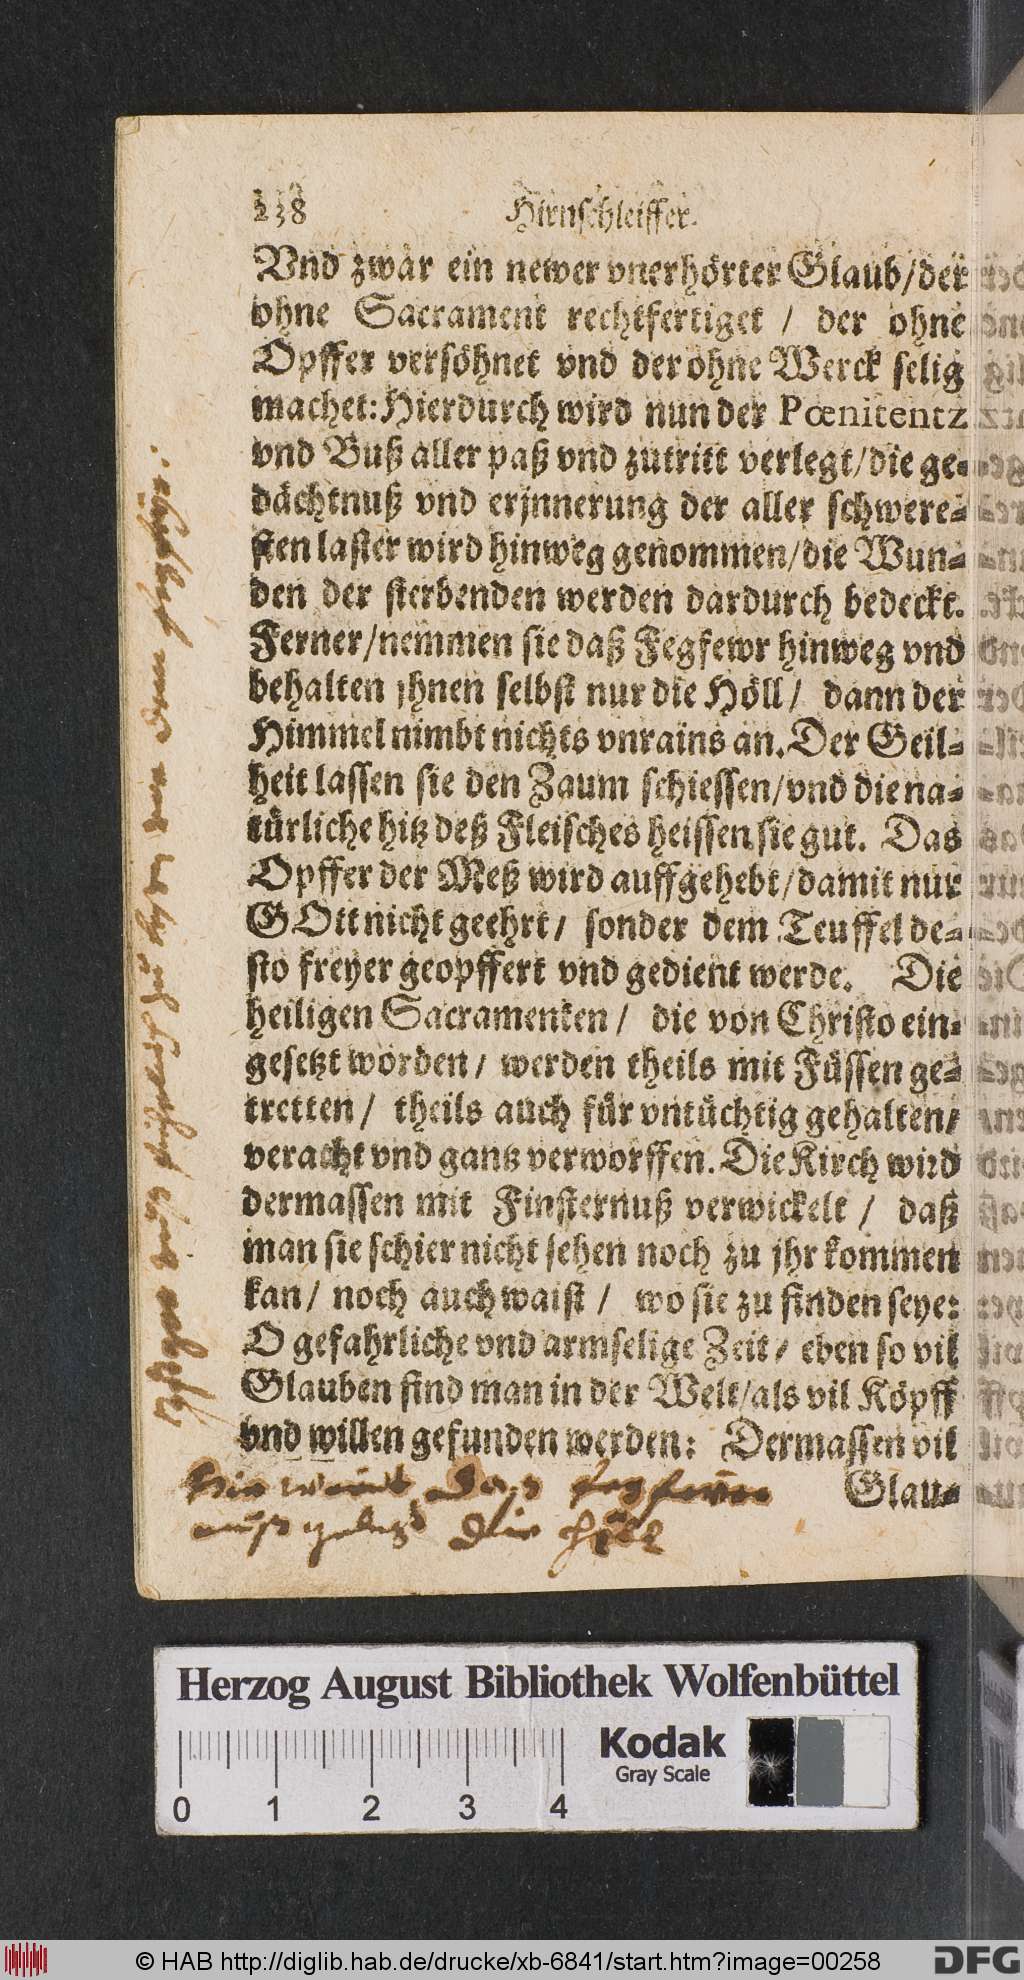 238 Hirnschleiffer.
Vnd zwar ein newer vnerhörter Glaub/der
ohne Sacrament rechtfertiget / der ohne
Opffer versöhnet vnd der ohne Werck selig
machet: Hierdurch wird nun der Pœnitentz
vnd Buß aller paß vnd zutritt verlegt/die ge-
dächtnuß vnd erjnnerung der aller schwere-
sten laster wird hinweg genommen/die Wun-
den der sterbenden werden dardurch bedeckt.
Ferner/nemmen sie daß Fegfewr hinweg vnd
behalten jhnen selbst nur die Höll / dann der
Himmel nimbt nichts vnrains an. Der Geil-
heit lassen sie den Zaum schiessen/vnd die na-
türliche hitz deß Fleisches heissen sie gut. Das
Opffer der Meß wird auffgehebt/damit nur
GOtt nicht geehrt / sonder dem Teuffel de-
sto freyer geopffert vnd gedient werde. Die
heiligen Sacramenten / die von Christo ein-
gesetzt worden / werden theils mit Füssen ge-
tretten / theils auch für vntüchtig gehalten/
veracht vnd gantz verworffen. Die Kirch wird
dermassen mit Finsternuß verwickelt / daß
man sie schier nicht sehen noch zu jhr kommen
kan / noch auch waist / wo sie zu finden seye:
O gefahrliche vnd armselige Zeit / eben so vil
Glauben find man in der Welt/als vil Köpff
vnd willen gefunden werden: Dermassen vil
Glau-
die Höll
Herzog August Bibliothek Wolfenbüttel
Kodak
Gray Scale
0 1 2 3 4
© HAB http://diglib.hab.de/drucke/xb-6841/start.htm?image=00258
DFG